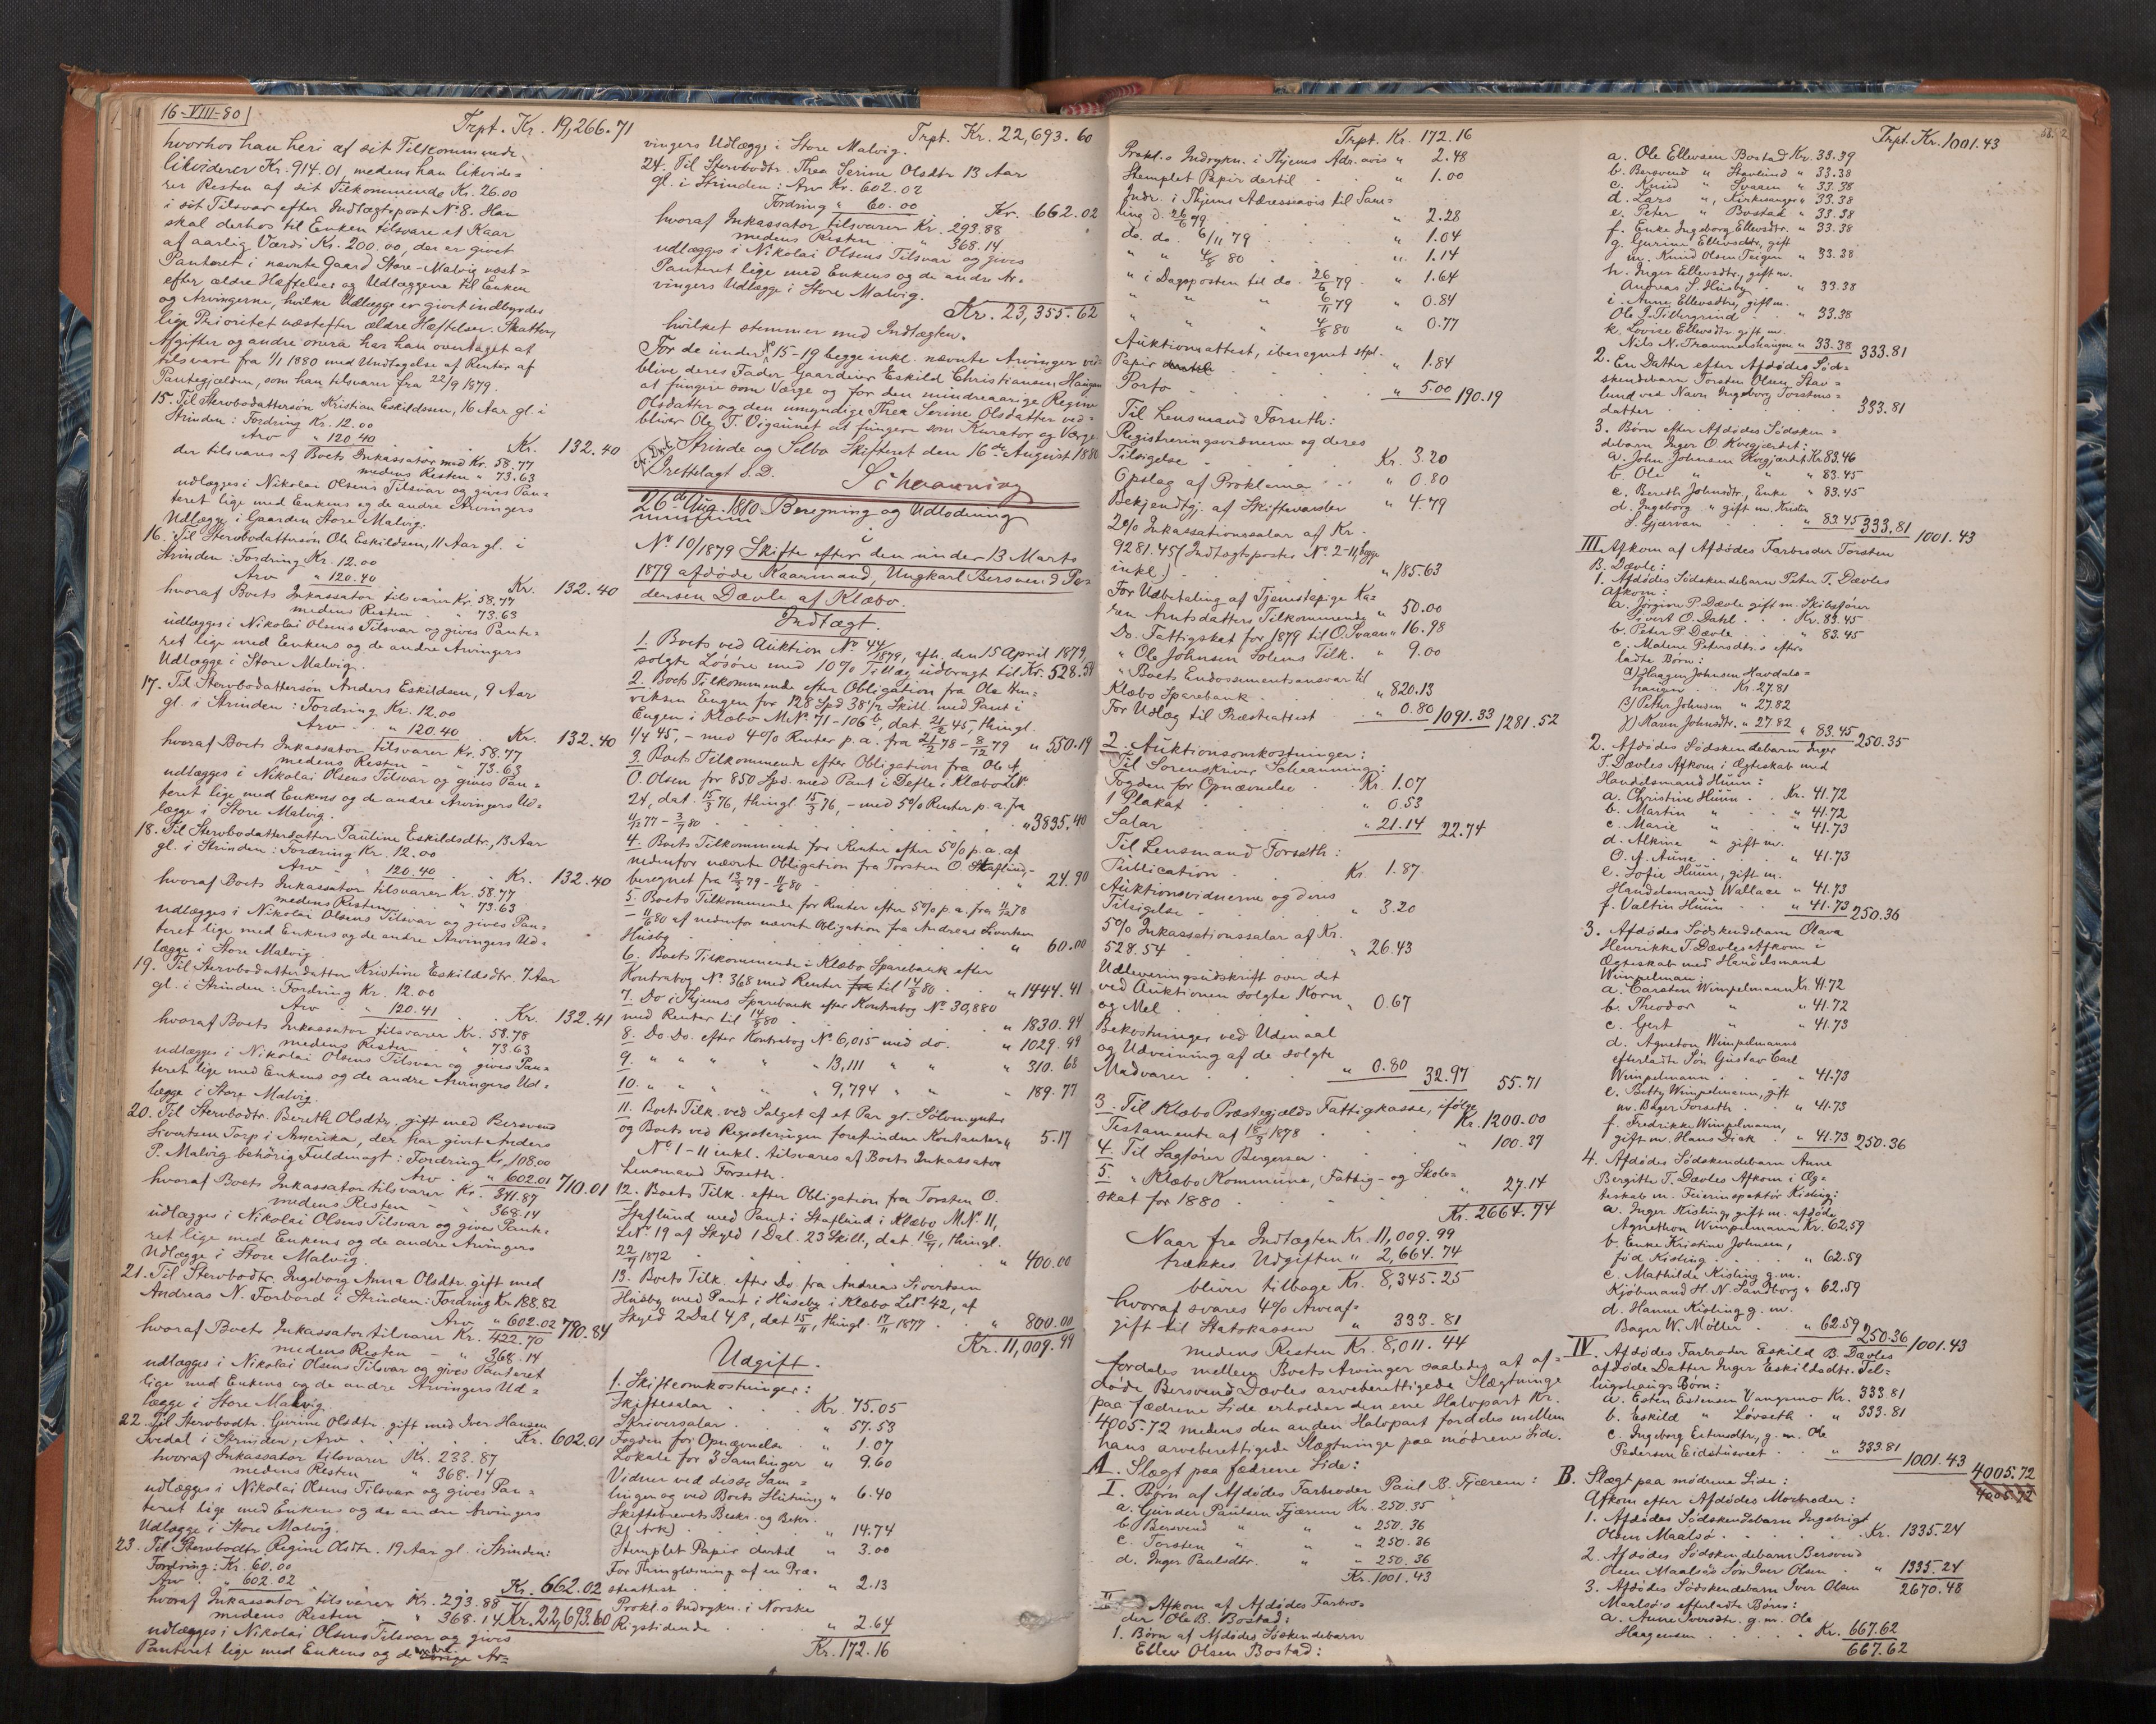 16-VIII-80
Trpt. Kr. 19,266.71
hvorhos han heri af sit Tilkommende
likviderer Kr. 914.01, medens han likvide=
rer Resten af sit Tilkommende Kr. 26.00
i sit Tilsvar efter Indtægtspost No 8. Han
skal derhos til Enken tilsvare et Kaar
af aarlig Værdi Kr. 200.00, der er givet
Panteret i nævnte Gaard Store-Malvig næst=
efter ældre Hæftelser og Udlæggene til Enken
og Arvingerne, hvilke Udlægge er givet indbyrdes
lige Prioritet næstefter ældre Hæftelser. Skatter,
Afgifter og andre onera har han overtaget at
tilsvare fra 1/1 1880 med Undtagelse af Renter af
Pantegjælden, som han tilsvarer fra 22/9 1879.
15. Til Stervbodattersøn Kristian Eskildssen, 16 Aar gl. i
Strinden: Fordring Kr. 12.00
Arv " 120.40 . Kr. 132.40
der tilsvares af Boets Inkassator med Kr. 58.77
medens Resten " 73.63
udlægges i Nikolai Olsens Tilsvar og gives Pan=
teret lige med Enkens og de andre Arvingers
Udlægge i Gaarden Store Malvig.
16. Til Stervbodattersøn Ole Eskildsen, 11 Aar gl. i
Strinden: Fordring Kr. 12.00
Arv " 120.40 Kr. 132.40
hvoraf Boets Inkassator tilsvarer Kr. 58.77
medens Resten " 73.63
udlægges i Nikolai Olsens Tilsvar og gives Pante=
ret lige med Enkens og de andre Arvingers
Udlægge i Store Malvig.
17. Til Stervbodattersøn Anders Eskildsen, 9 Aar
gl. i Strinden: Fordring Kr. 12.00
Arv . . " 120.40 . Kr. 132.40
hvoraf Boets Inkassator tilsvarer Kr. 58.77
medens Resten - " 73.63
udlægges i Nikolai Olsens Tilsvar og gives Pan=
teret lige med Enkens og de andre Arvingers Ud=
lægge i Store Malvig.
18. Til Stervbodatterdatter Pauline Eskildsdtr., 13 Aar
gl. i Strinden: Fordring Kr. 12.00
Arv - " 120.40 . Kr. 132.40
hvoraf Boets Inkassator tilsvarer Kr. 58.77
medens Resten - " 73.63
udlægges i Nikolai Olsens Tilsvar og gives Pan=
teret lige med Enkens og de andre Arvingers Ud=
lægge i Store Malvig.
19. Til Stervbodatterdatter Kristine Eskildsdtr. 7 Aar
gl. i Strinden: Fordring Kr. 12.00
Arv . " 120.41 . Kr. 132.41
hvoraf Boets Inkassator tilsvarer Kr. 58.78
medens Resten - " 73.63
udlægges i Nikolai Olsens Tilsvar og gives Pan=
teret lige med Enkens og de andre Arvingers Ud=
lægge i Store Malvig.
20. Til Stervbodtr. Bereth Olsdtr. gift med Bersvend
Sivertsen Torp i Amerika, der har givet Anders
P. Malvig behørig Fuldmagt: Fordring Kr. 108.00
Arv . " 602.01 710.01
hvoraf Boets Inkassator tilsvarer Kr. 341.87
medens Resten - " 368.14
udlægges i Nikolai Olsens Tilsvar og gives Pante=
ret lige med Enkens og de andre Arvingers
Udlægge i Store Malvig.
21. Til Stervbodtr. Ingeborg Anna Olsdtr. gift med
Andreas N. Forbord i Strinden: Fordring Kr. 188.82
Arv " 602.02 790.84
hvoraf Boets Inkassator tilsvarer Kr. 422.70
medens Resten - " 368.14
udlægges i Nikolai Olsens Tilsvar og gives Panteret
lige med Enkens og de andre Arvingers Ud=
lægge i Store Malvig.
22. Til Stervbodtr. Gurine Olsdtr. gift med Iver Hansen
Svedal i Strinden, Arv . . . Kr. 602.01
hvoraf Inkassator tilsvarer Kr. 233.87
medens Resten " 368.14
udlægges i Nikolai Olsens Tilsvar og gives Pan=
teret lige med Enkens og de andre Arvingers
Udlægge i Store Malvig.
23. Til Stervbodtr. Regine Olsdtr. 19 Aar gl. i Strinden:
Fordring: Kr. 60.00
Arv . " 602.02 Kr. 662.02
hvoraf Inkassator tilsvarer Kr. 293.88
medens Resten " 368.14 Kr. 22,693.60
udlægges i Nikolai Olsens Tilsvar og gives
Panteret lige med Enkens og de andre øvrige Ar=
Trpt. Kr. 22,693.60
vingers Udlægge i Store Malvig.
24. Til Stervbodtr. Thea Serine Olsdtr 13 Aar
gl. i Strinden: Arv Kr. 602.02
Fordring " 60.00 Kr. 662.02
hvoraf Inkassator tilsvarer Kr. 293.88
medens Resten . " 368.14
udlægges i Nikolai Olsens Tilsvar og gives
Panteret lige med Enkens og de andre Ar=
vingers Udlægge i Store Malvig.
Kr. 23,355.62
hvilket stemmer med Indtægten.
For de under No 15-19 begge inkl. nævnte Arvinger ved=
blive deres Fader Gaardeier Eskild Christiansen Haugan
at fungere som Værge og for den mindreaarige Regine
Olsdatter og den umyndige Thea Serine Olsdatter ved=
bliver Ole T. Vigaunet at fungere som Kurator og Værge.
Strinde og Selbo Skifteret den 16de August 1880
Schaanning
Fretftlagt s.D.
26de Aug. 1880. Beregning og Udlodning
i
No 10/1879 Skifte efter den under 13 Marts
1879 afdøde Kaarmand, Ungkarl Bersvend Pe=
dersen Dævle af Klæbo.
Indtægt.
1. Boets ved Auktion No 44/1879, afh. den 15 April 1879,
solgte Løsøre med 10% Tillæg udbragt til Kr. 528.54
2. Boets Tilkommende efter Obligation fra Ole Hen=
riksen Eugen for 128 Spd 38 1/2 Skill. med Pant i
Eugen i Klæbo M.No 71-106b, dat. 21/2 45, thingl.
1/4 45, - med 4% Renter p. a. fra 21/2 78 - 8/12 79 " 550.19
3. Boets Tilkommende efter Obligation fra Ole A.
O. Olsen for 850 Spd. med Pant i Tefte i Klæbo L.No
24, dat. 15/3 76, thingl. 15/3 76, - med 5% Renter p. a. fra
11/12 77 - 3/7 80 . . . " 3835.40
4. Boets Tilkommende for Renter efter 5% p. a. af
nedenfor nævnte Obligation fra Torsten O. Staflund-
beregnet fra 13/3 79 - 11/6 80 . . . " 24.90
5. Boets Tilkommende for Renter efter 5% p. a. fra 11/12 78
- 11/6 80 af nedenfor nævnt Obligation fra Andreas Sivertsen
Husby . . . " 60.00
6. Boets Tilkommende i Klæbo Sparebank efter
Kontrabog No 368 med Renter fra til 14/8 80 . " 1444.41
7. Do i Thjems Sparebank efter Kontrabog No 30,880
med Renter til 14/8 80 . . . " 1830.94
8. Do. Do. efter Kontrabog No 6,015 med do. " 1029.99
9. " " " " " 13,111 " " " 310.68
10. " " " " " 9,794 " " " 189.77
11. Boets Tilk. ved Salget af et Par gl. Sølvmynter
og Boets ved Registeringen forefundne Kontanter " 5.17
No 1-11 inkl. tilsvares af Boets Inkassator
Lensmand Forseth.
12. Boets Tilk. efter Obligation fra Torsten O.
Staflund med Pant i Staflund i Klæbo M.No 11,
L.No 19 af Skyld 1 Dal. 23 Skill, dat 16/11, thingl.
22/11 1872 . . . " 400.00
13. Boets Tilk. efter Do fra Andreas Sivertsen
Husby med Pant i Huseby i Klæbo L.No 42, af
Skyld 2 Dal 4 β, dat 15/11, thingl. 17/11 1877 . . " 800.00
Kr. 11,009.99
Udgift.
1. Skifteomkostninger:
Skiftesalar . . Kr. 75.05
Skriversalar . . " 57.53
Fogden for Opnævnelse . " 1.07
Lokale for 3 Samlinger " 9.60
Vidner ved disse Sam=
linger og ved Boets Slutning " 6.40
Skiftebrevets Beskr. og Bekr.
(21 Ark) . . " 14.74
Stemplet Papir dertil " 3.00
For Thinglæsning af en Præ=
steattest . . " 2.13
Prokl.s Indrykn. i Norske
Rigstidende . . " 2.64
Kr. 172.16
Trpt. Kr. 172.16
Prokl.s Indrykn. i Thjems Adr. avis " 2.48
Stemplet Papir dertil . . " 1.00
Indr. i Thjems Adresseavis til Sam=
ling d. 26/6 79 . . " 2.28
do. do. 6/11 79 . . " 1.04
" " 4/8 80 . . " 1.14
" i Dagsposten til do. 26/6 79 . " 1.64
" " " 6/11 79 " 0.84
" " " 4/8 80 " 0.77
Auktionsattest, iberegnet stpl.
Papir dertil . . " 1.84
Porto . . " 5.00 190.19
Til Lensmand Forseth:
Registreringsvidnerne og deres
Tilsigelse . . Kr. 3.20
Opslag af Proklama . . " 0.80
Bekjendtgj. af Skiftevarsler " 4.79
2% Inkassationssalar af Kr.
9281.45 (Indtægtsposter No 2-11, begge
inkl.) . . " 185.63
For Udbetaling af Tjenestepige Ka=
ren Arntsdatters Tilkommende " 50.00
Do. Fattigskat for 1879 til O. Svaan " 16.98
" Ole Johnsen Solems Tilk. " 9.00
" Boets Endossementsansvar til
Klæbo Sparebank . . " 820.13
For Udlæg til Præsteattest . . " 0.80 1091.33 1281.52
2. Auktionsomkostninger:
Til Sorenskriver Schaanning:
Fogden for Opnævnelse . Kr. 1.07
1 Plakat . . " 0.53
Salar . . " 21.14 22.74
Til Lensmand Forseth:
Publication . . Kr. 1.87
Auktionsvidnerne og deres
Tilsigelse . . " 3.20
5% Inkassationssalar af Kr.
528.54 . . " 26.43
Udleveringsudskrift over det
ved Auktionen solgte Korn
og Mel . . " 0.67
Bekostninger ved Udmaal
og Udveining af de solgte
Madvarer . . " 0.80 32.97 55.71
3. Til Klæbo Præstegjælds Fattigkasse, ifølge
Testamente af 18/3 1878 . . Kr. 1200.00
4. Til Sagfører Bergersen . . " 100.37
5. " Klæbo Kommune, Fattig- og Skole=
skat for 1880 . . " 27.14
Kr. 2664.74
Naar fra Indtægten Kr. 11,009.99
trækkes Udgiften " 2,664.74
bliver tilbage Kr. 8,345.25
hvoraf svares 4% Arveaf=
gift til Statskassen " 333.81
medens Resten Kr. 8,011.44
fordeles mellem Boets Arvinger saaledes at af=
døde Bersvend Dævles arveberettigede Slægtninge
paa fædrene Side erholder den ene Halvpart Kr.
4005.72 medens den anden Halvpart fordeles mellem
hans arveberettigede Slægtninge paa mødrene Side.
A. Slægt paa fædrene Side:
I. Børn af Afdødes Farbroder Paul B. Fjærem:
a. Gunder Paulsen Fjærem Kr. 250.35
b. Bersvend " " " 250.36
c. Torsten " " " 250.36
d. Inger Paulsdtr. " " 250.36
Kr. 1001.43
II. Afkom af Afdødes Farbro=
der Ole B. Bostad:
1. Børn af Afdødes Søskendebarn
Ellev Olsen Bostad:
582
Trpt. Kr. 1001.43
a. Ole Ellevsen Bostad Kr. 33.39
b. Bersvend " Stavlund " 33.38
c. Knud " Svaaen " 33.38
d. Lars " Kirkesanger " 33.38
e. Peter " Bostad " 33.38
f. Enke Ingeborg Ellevsdtr. " 33.38
g. Gurine Ellevsdtr, gift
m. Knud Olsen Teigen " 33.38
h. Inger Ellevsdtr., gift m.
Andreas S. Husby . " 33.38
i. Anne Ellevsdtr, gift m.
Ole J. Tillergrind . . " 33.38
k. Lovise Ellevsdtr gift m.
Nils N. Traumelshaugen " 33.38 333.81
2. En Datter efter Afdødes Sød=
skendebarn Torsten Olsen Stav=
lund ved Navn Ingeborg Torstens=
datter . . . 333.81
3. Børn efter Afdødes Sødsken=
debarn Inger O. Kvegjærdet:
a. John Johnsen Kvegjærdet Kr. 83.46
b. Ole " " " 83.45
c. Bereth Johnsdtr., Enke " 83.45
d. Ingeborg " gift m. Kristen
S. Gjervan . . " 83.45 333.81 1001.43
III. Afkom af Afdødes Farbroder Torsten
B. Dævle:
1. Afdødes Sødskendebarn Peter T. Dævles
Afkom:
a. Jørgine P. Dævle gift m. Skibsfører
Sivert O. Dahl . . Kr. 83.45
b. Peter P. Dævle . . " 83.45
c. Malene Petersdtr.s efter=
ladte Børn:
α) Haagen Johnsen Havdals=
haugen . . Kr. 27.81
β) Peter Johnsen " 27.82
γ) Karen Johnsdtr. " 27.82 " 83.45 250.35
2. Afdødes Sødskendebarn Inger
T. Dævles Afkom i Ægteskab med
Handelsmand Huun:
a. Christine Huun . . Kr. 41.72
b. Martin " . " 41.72
c. Marie " . " 41.73
d. Alkine " gift m.
O. A. Aune . . " 41.73
e. Sofie Huun, gift m.
Handelsmand Wallace " 41.73
f. Valtin Huun . . " 41.73 250.36
3. Afdødes Sødskendebarn Olava
Henrikke T. Dævles Afkom i
Ægteskab med Handelsmand
Wimpelman:
a. Carsten Wimpelmann Kr. 41.72
b. Theodor " " 41.72
c. Gert " " 41.73
d. Agneton Wimpelmanns
efterladte Søn Gustav Carl
Wimpelmann . . " 41.73
e. Betty Wimpelmann, gift
m. Bager Forseth . " 41.73
f. Fredrikke Wimpelmann,
gift m. Hans Dick . " 41.73 250.36
4. Afdødes Sødskendebarn Anne
Bergitte T. Dævles Afkom i Æg=
teskab m. Feierinspektør Kisling:
a. Inger Kisling, gift m. afdøde
Agnethon Wimpelmann Kr. 62.59
b. Enke Kristine Johnsen,
fød Kisling . . " 62.59
c. Mathilde Kisling g. m.
Kjøbmand H. N. Sandborg " 62.59
d. Hanne Kisling g. m.
Bager W. Møller . . " 62.59 250.36 1001.43
IV. Afdødes Farbroder Eskild B. Dævles
afdøde Datter Inger Eskildsdtr. Tel=
lugshaugs Børn:
a. Esten Estensen Vangsmo Kr. 333.81
b. Eskild " Løvseth . " 333.81
c. Ingeborg Estensdtr, g. m. Ole
Pedersen Eidstuveet . . " 333.81 1001.43 4005.72
4005.72
B. Slægt paa mødrene Side:
Afkom efter Afdødes Morbroder:
1. Afdødes Sødskendebarn Ingebrigt
Olsen Maalsø . . . Kr. 1335.24
2. Afdødes Sødskendebarn Bersvend
Olsen Maalsøs Søn Iver Olsen . " 1335.24
2670.48
3. Afdødes Sødskendebarn Iver Olsen
Maalsø's efterladte Børn:
a. Anne Iversdtr. g. m. Ole
Haagensen . . . Kr. 667.62
667.62